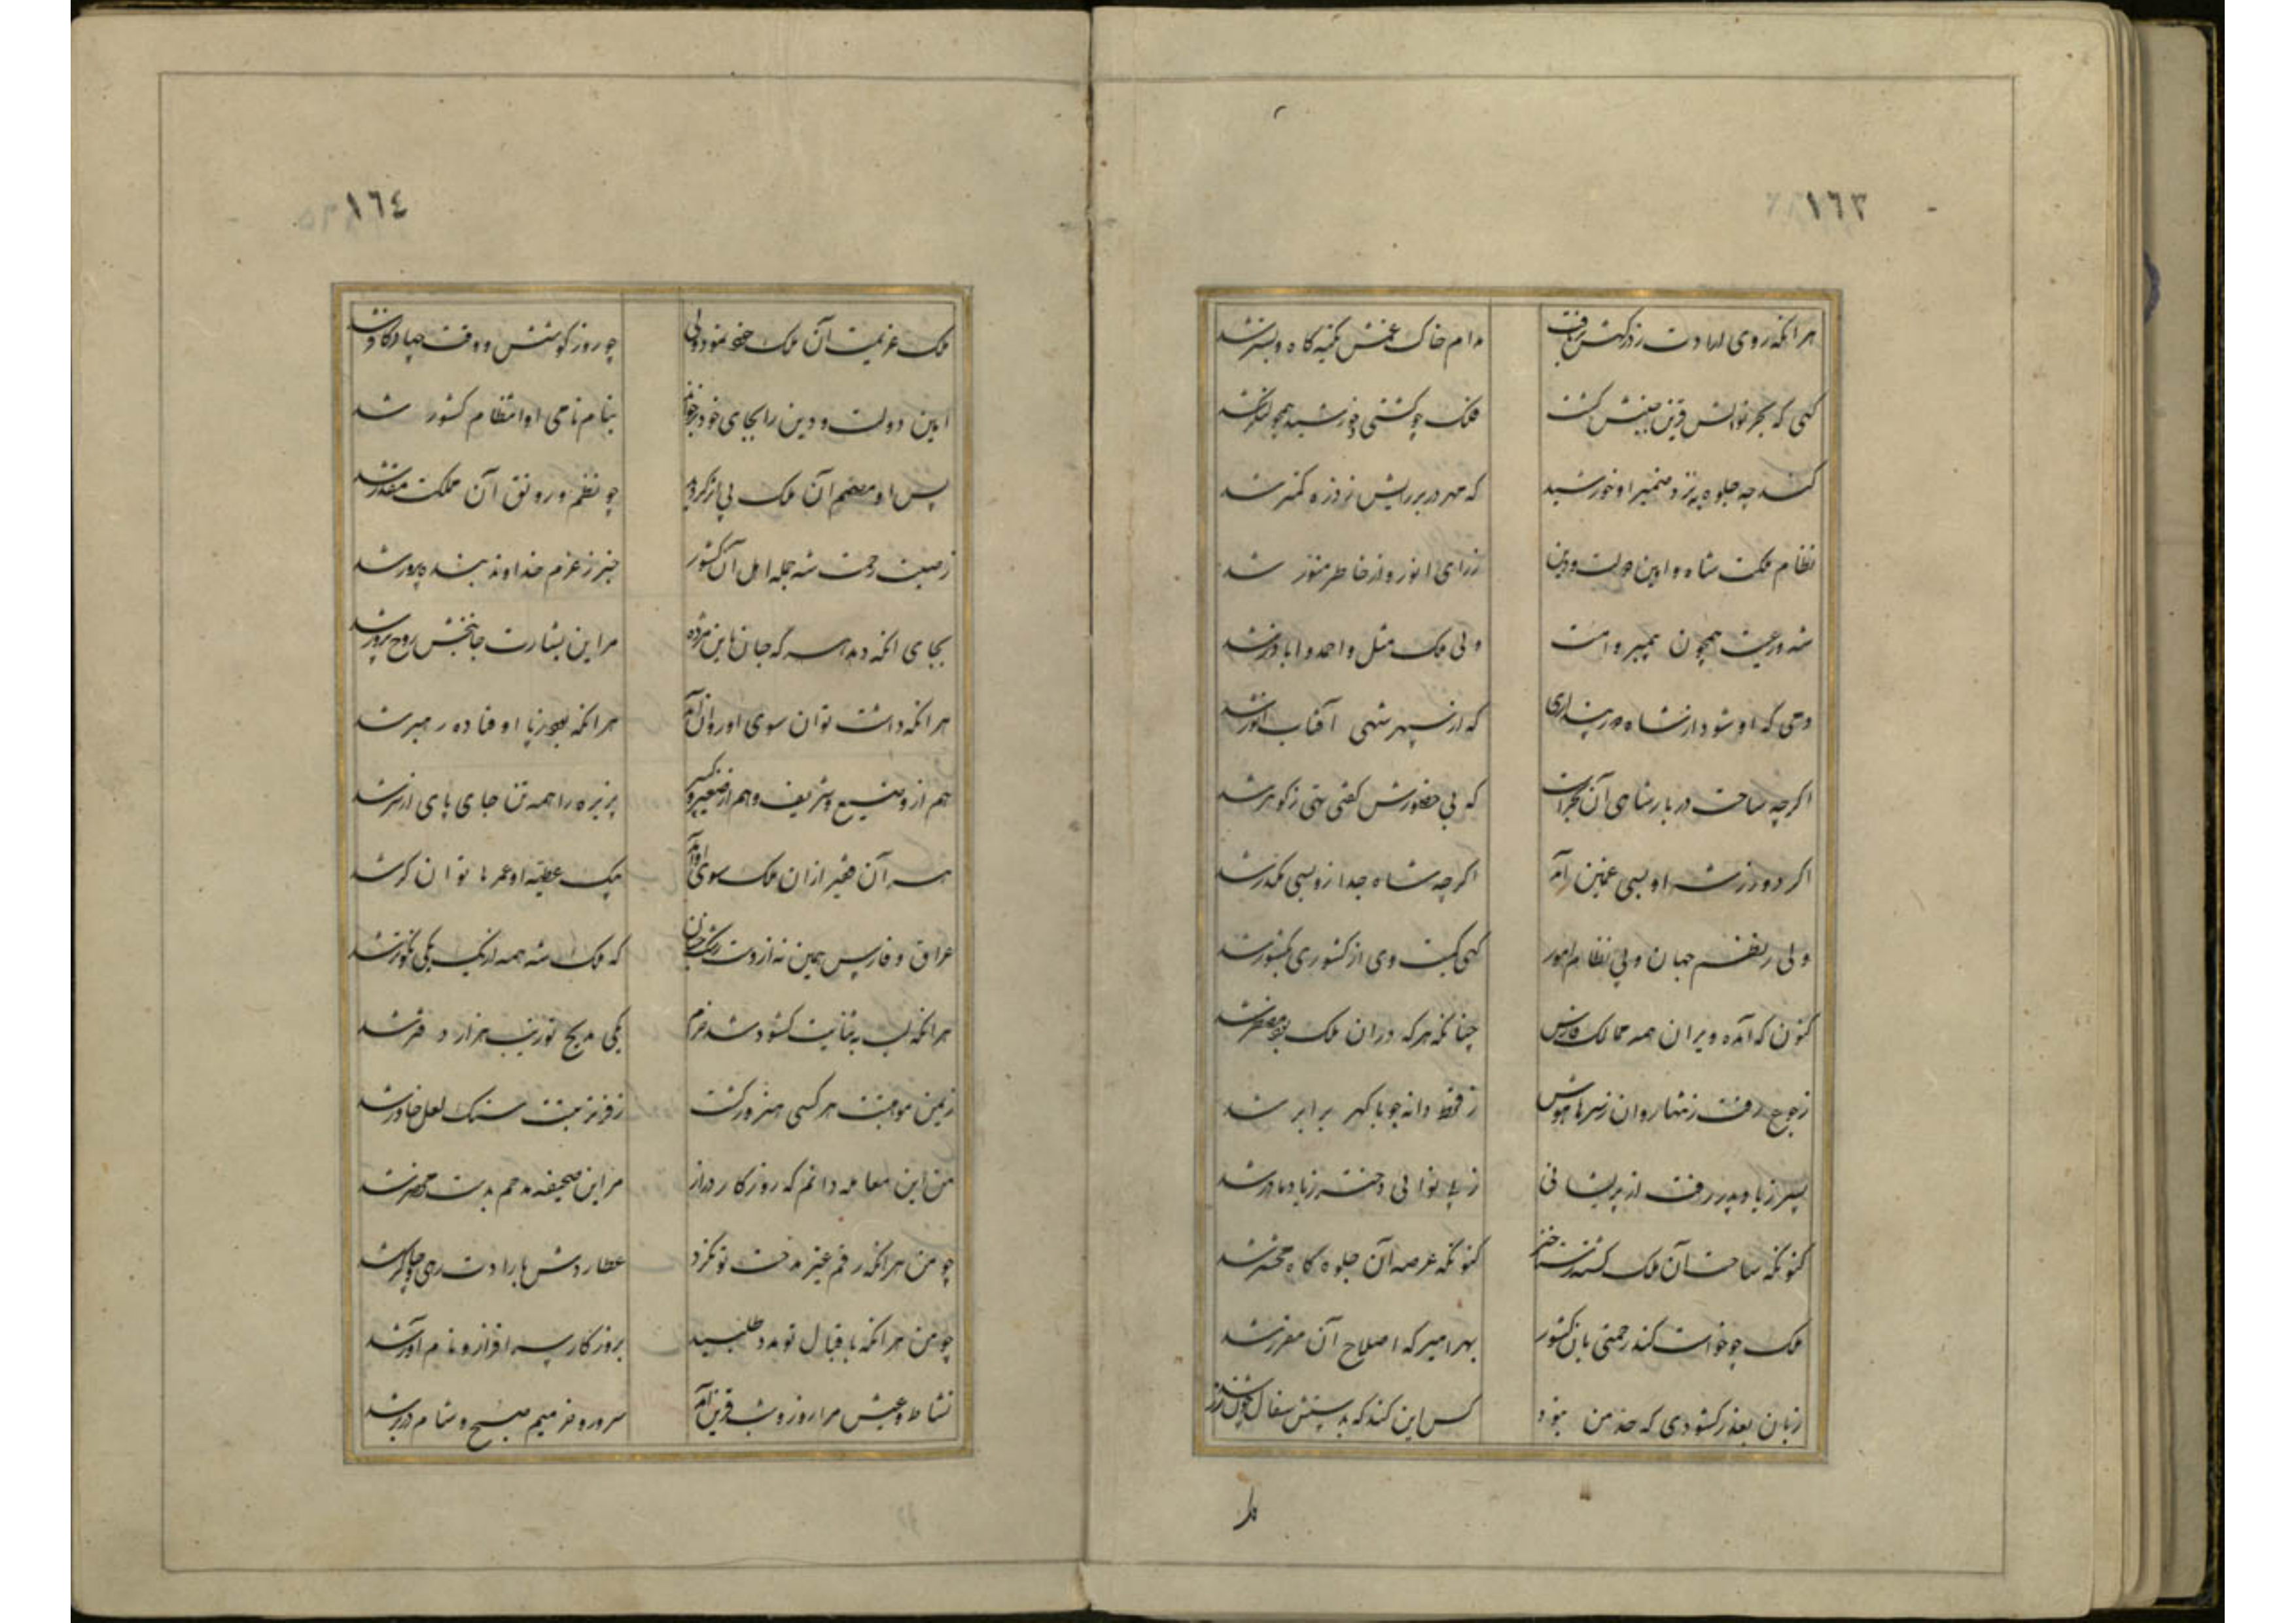 ١٦٣
هر انکه روی ارادت ز درکهش برتافت مدام خاک غمش تکیه کاه و بستر شد
کهی که بحر نوالش قرین جنبش کشت فلک چو کشتی و خورشید همچو لنکر شد
کند چه جلوه به نزد ضمیر او خورشید که مهر در بر رایش ز ذره کمتر شد
نظام ملکت شاه و امین دولت و دین ز رای انور و از خاطر منور شد
شه و رعیت همچون پیمبر و امت ولی ملک مثل واحد و ابا ذر شد
دمی که او شود از شاه دور پنداری که از سپهر شهی آفتاب انور شد
اکرچه ساحت دربار شاهی آن بحر است که بی حضورش کفتی تهی ز کوهر شد
اکر دو روز شه او بسی غمین آمد اکرچه شاه جدا زو بسی مکدر شد
ولی ز نظم جهان و پی نظام امور کهی کیت وی از کشوری بکشور شد
کنون که آمده ویران همه ممالک فارس چنانکه هر که در آن ملک بود مضطر شد
ز جوع رفت ز تنها روان ز سرها هوش ز قحط دانه جو با کهر برابر شد
پسر ز یاد پدر رفت از پریشانی ز بی نوائی دختر ز یاد مادر شد
کنونکه ساحت آن ملک کشته رستاخیز کنونکه عرصه آن جلوه کاه محشر شد
ملک چو خواست کند رحمتی بان کشور بهر امیر که اصلاح آن مقرر شد
زبان بعذر کشودی که حد من نبود کس این کند که بدستش سفال چون زر شد
١٦٤
ملک عزیمت آن ملک خود نمود ولی چو روز کوشش و وقت جهاد کافر شد
امین دولت و دین را بجای خود بر خواند بنام نامی او انتظام کشور شد
پس او مصمم آن ملک پی ز کردید چو نظم و رونق آن مملکت مقدر شد
ز صیت رحمت شه جمله اهل آن کشور خبر ز عزم خداوند بنده پرور شد
بجای انکه دهد سر که جان باین مژده مر این بشارت جانبخش روح پرور شد
هر انکه داشت توان سوی او روان آمد هر انکه بود ز پا اوفتاده رهبر شد
هم از وضیع و شریف و هم از صغیر و کبیر پذیره را همه تن جای پای از سر شد
هر آن فقیر از ان ملک سوی او آمد بیک عطیه او عمرها توانکر شد
عراق و فارس همین نه از وست رشک جنان که ملک شه همه از یک بیک نکوتر شد
هر انکه لب به ثنایت کشود شد خرم یکی مدیح تو زیب هزار دفتر شد
ز یمن موهبتت هر کسی هنرور کشت ز فر تربیتت سنک لعل خاور شد
من این معامله دانم که روزکار دراز مر این صحیفه مدحم بدست و محضر شد
چو من هر انکه رقم غیر مدحت تو نکرد عطاردش بارادت رهی و چاکر شد
چو من هر انکه باقبال تو مدد طلبید بروزکار سر افراز و نام آور شد
نشاط و عیش مرا روز و شب قرین آمد سرور و خرمیم صبح و شام در بر شد